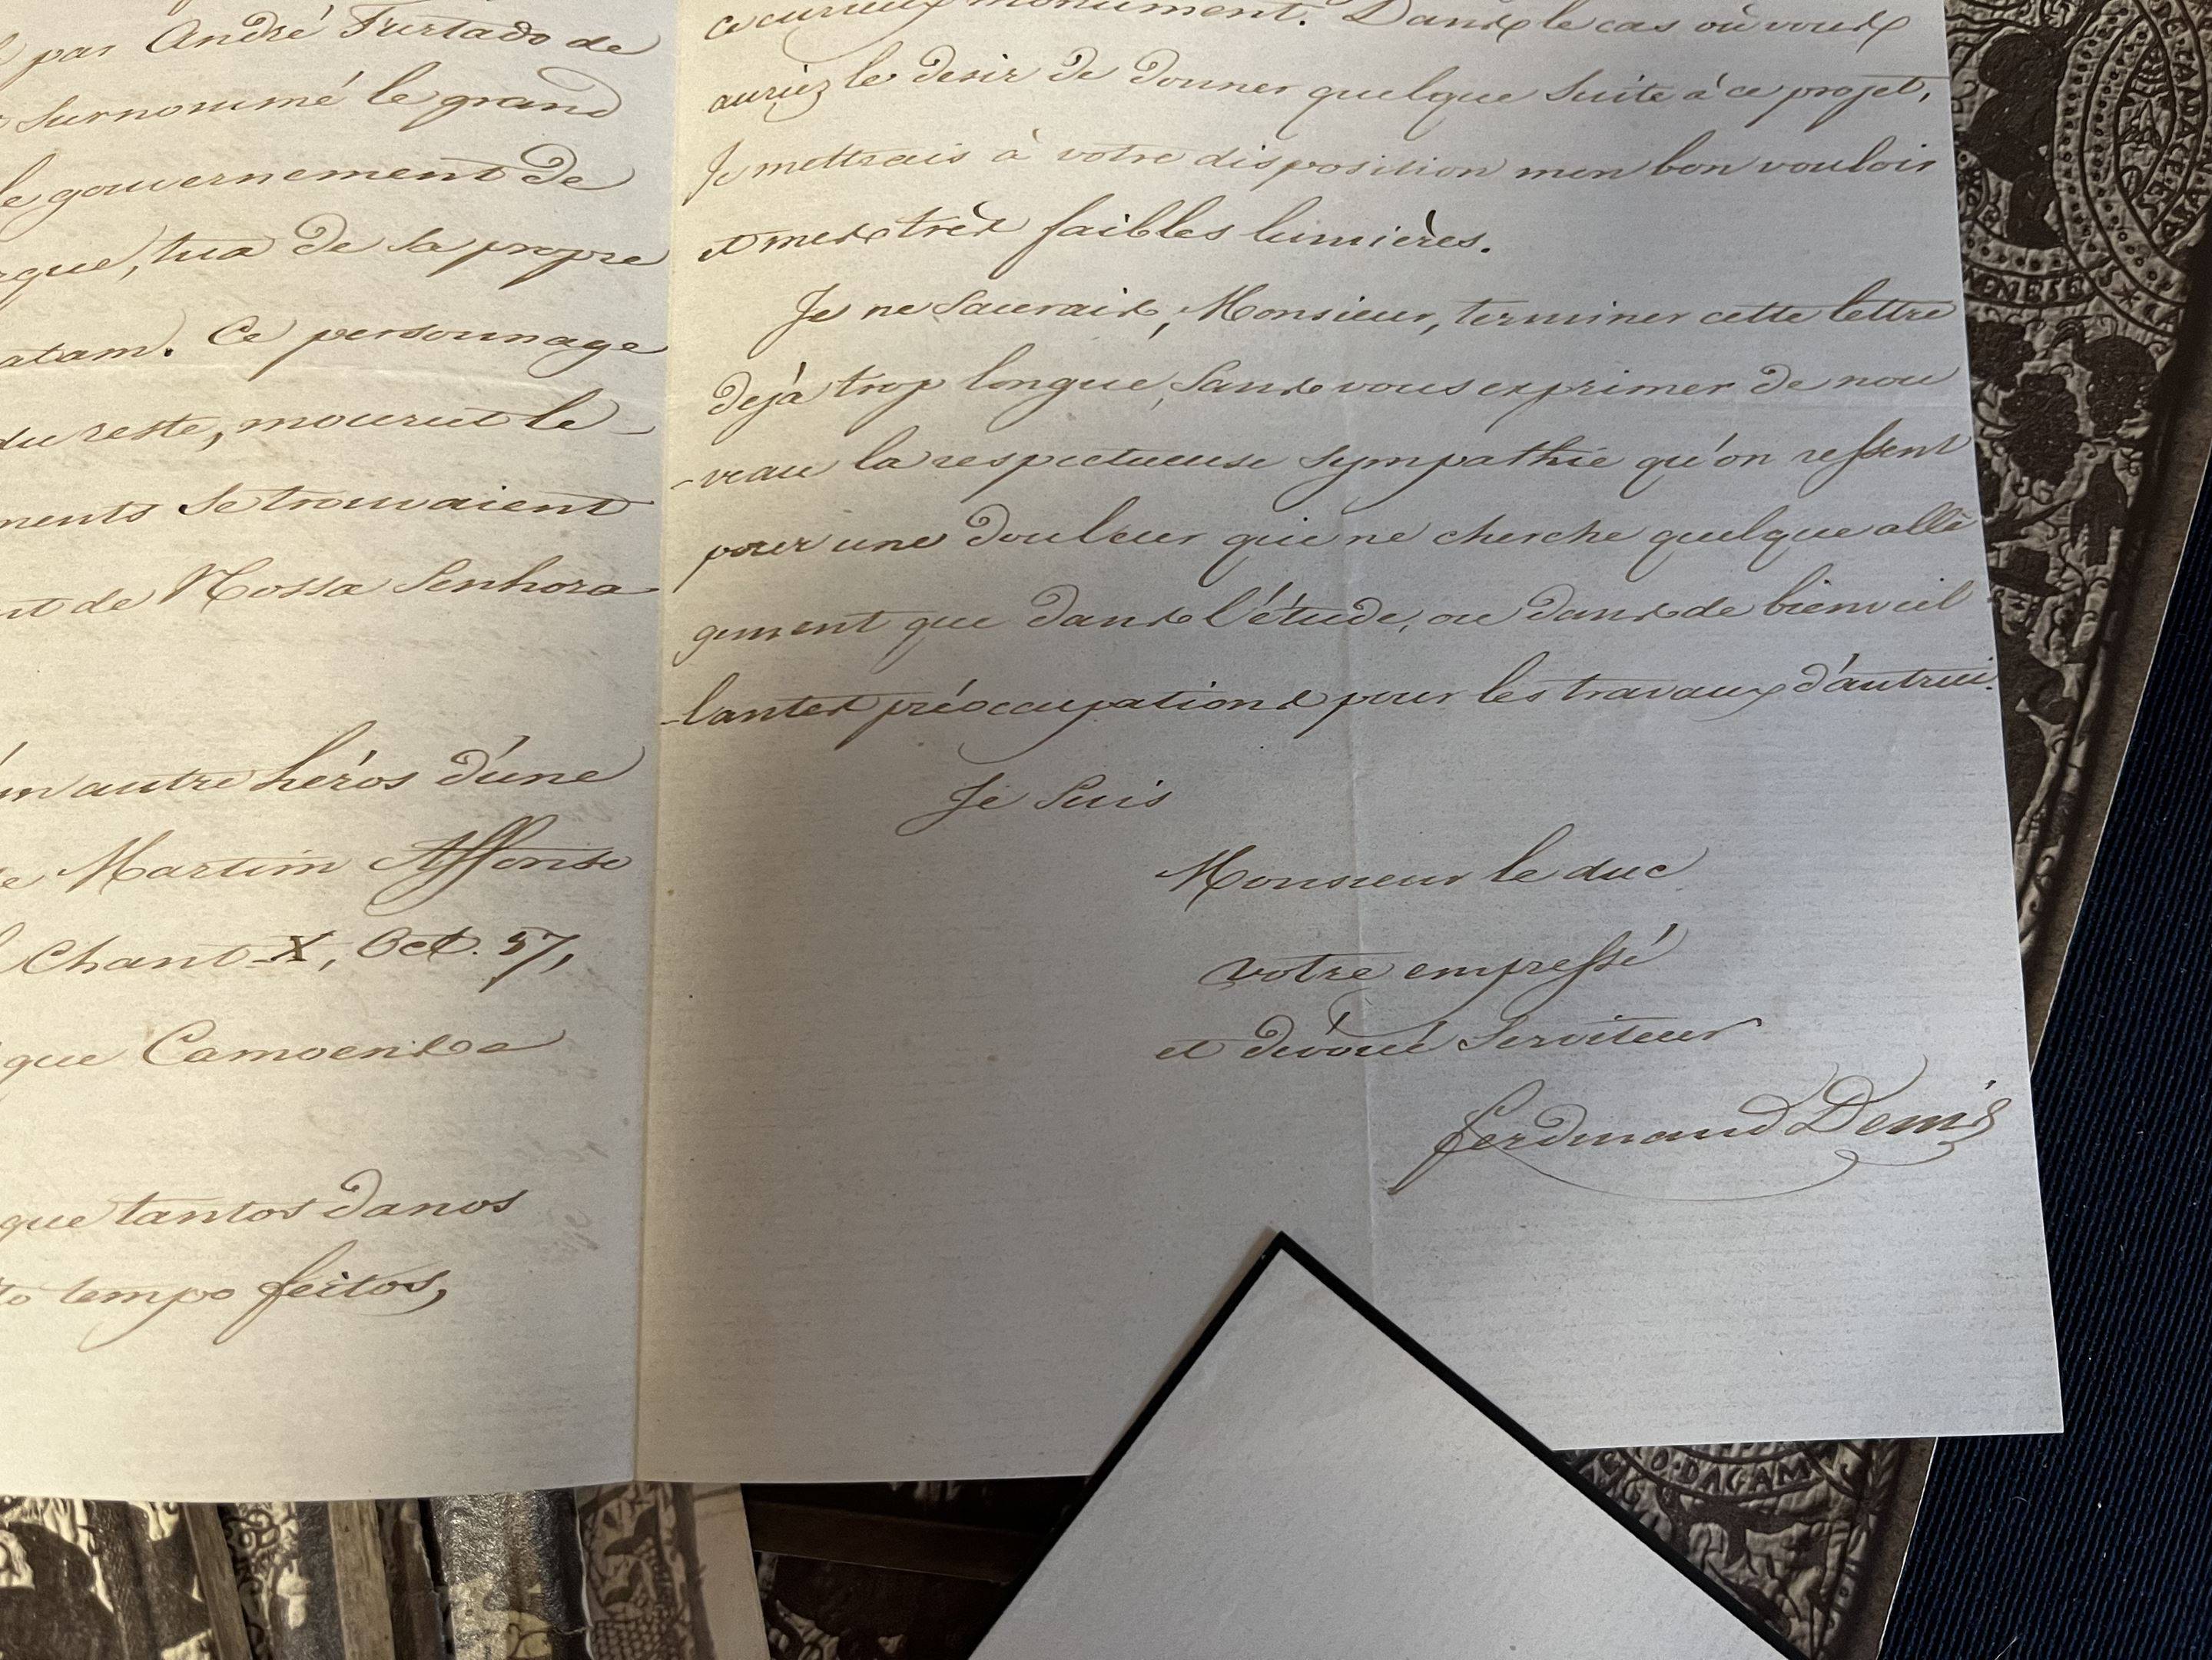 par André Furtado de
surnommé le grand
le gouvernement de
tua de sa propre
atam. Ce personnage
du reste, mourut le
ments se trouvaient
de Nossa Senhora
autre héros d'une
Martim Affonso
Chant X, Oct. 57,
que Camoens a
que tantos danos
tempo feitos,
ce curieux monument. Dans le cas où vous
auriez le desir de donner quelque suite à ce projet,
Je mettrais à votre disposition mon bon vouloir
et mes très faibles lumières.
Je ne saurais, Monsieur, terminer cette lettre
dejà trop longue, sans vous exprimer de nou
-veau la respectueuse sympathie qu'on ressent
pour une douleur qui ne cherche quelque allè
gement que dans l'étude, ou dans de bienveil
-lantes préoccupations pour les travaux d'autrui.
Je suis
Monsieur le duc
votre empressé
et dévoué serviteur
Ferdinand Denis
O·DAGAM